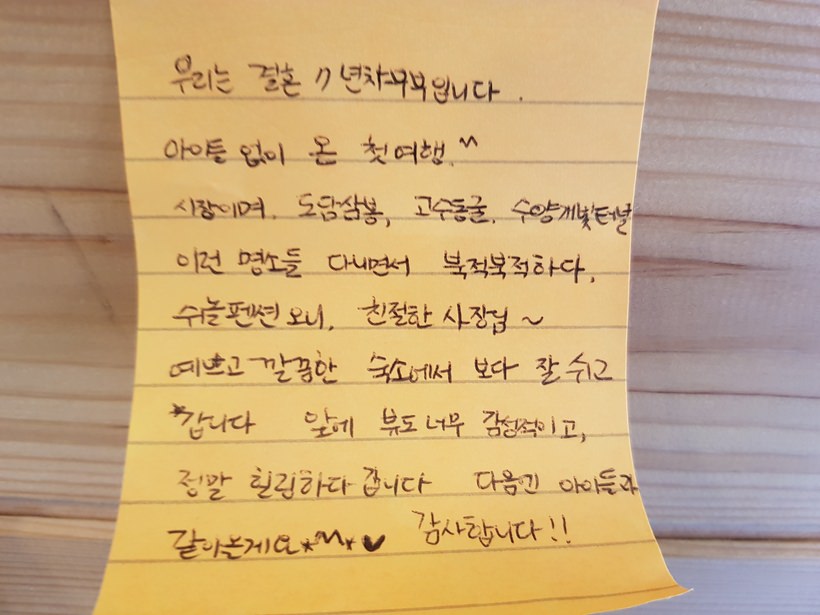 우리는 결혼 11년차부부입니다.
아이들 없이 온 첫여행.^^
시장이며, 도담삼봉, 고수동굴, 수양개빛터널
이런 명소들 다니면서 북적북적하다,
쉬놀펜션 오니, 친절한 사장님~
예쁘고 깔끔한 숙소에서 보다 잘 쉬고
갑니다 앞에 뷰도 너무 감성적이고,
정말 힐링하다 갑니다 다음긴 아이들과
같이올게요*^^*♥ 감사합니다!!